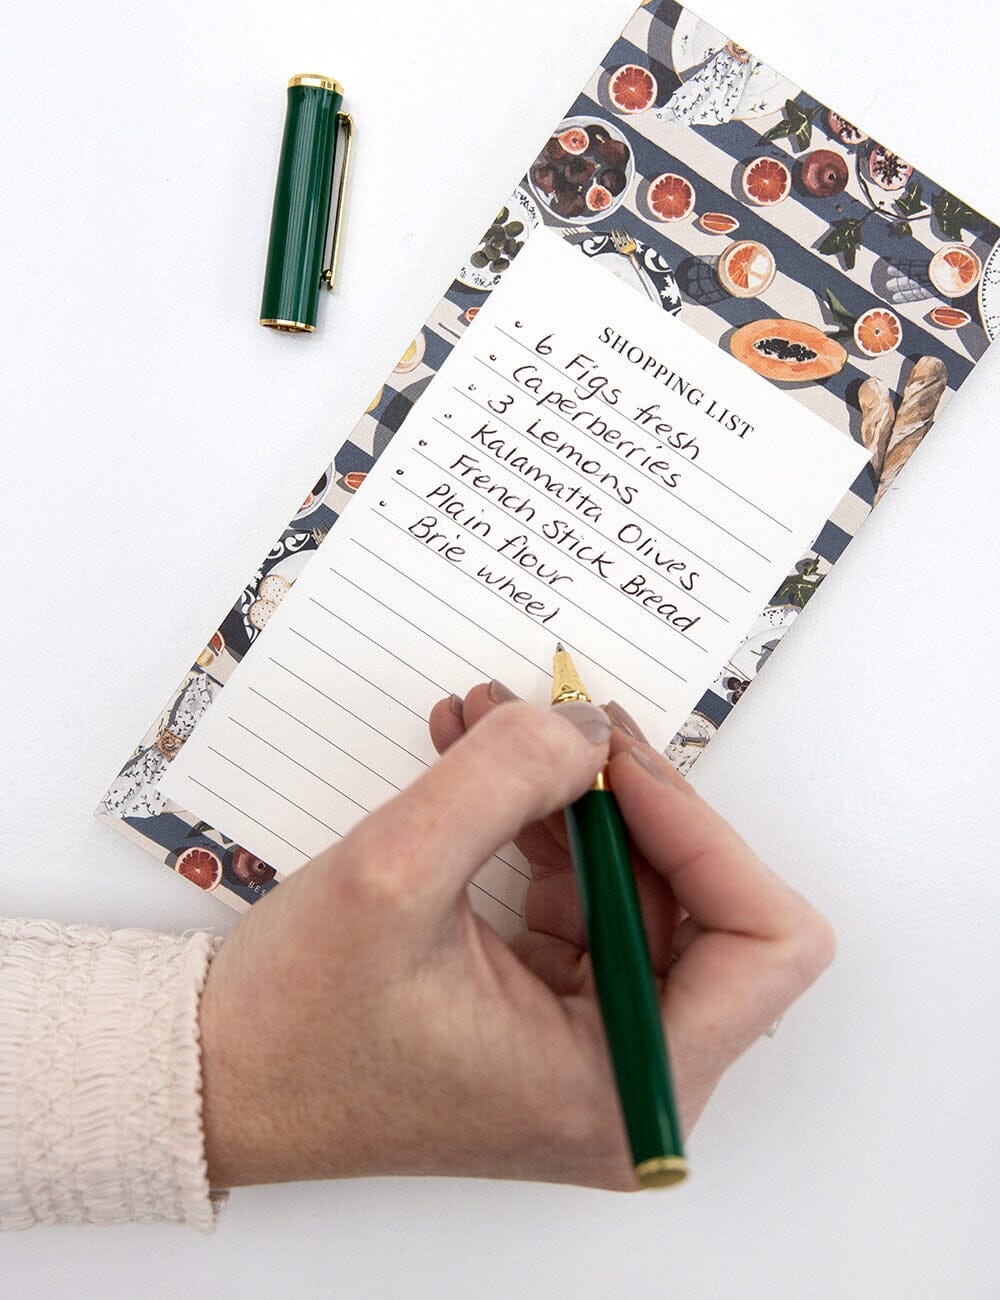 SHOPPING LIST
• 6 Figs fresh
• Caperberries
• 3 Lemons
• Kalamatta Olives
• French Stick Bread
• Plain flour
• Brie wheel
BES